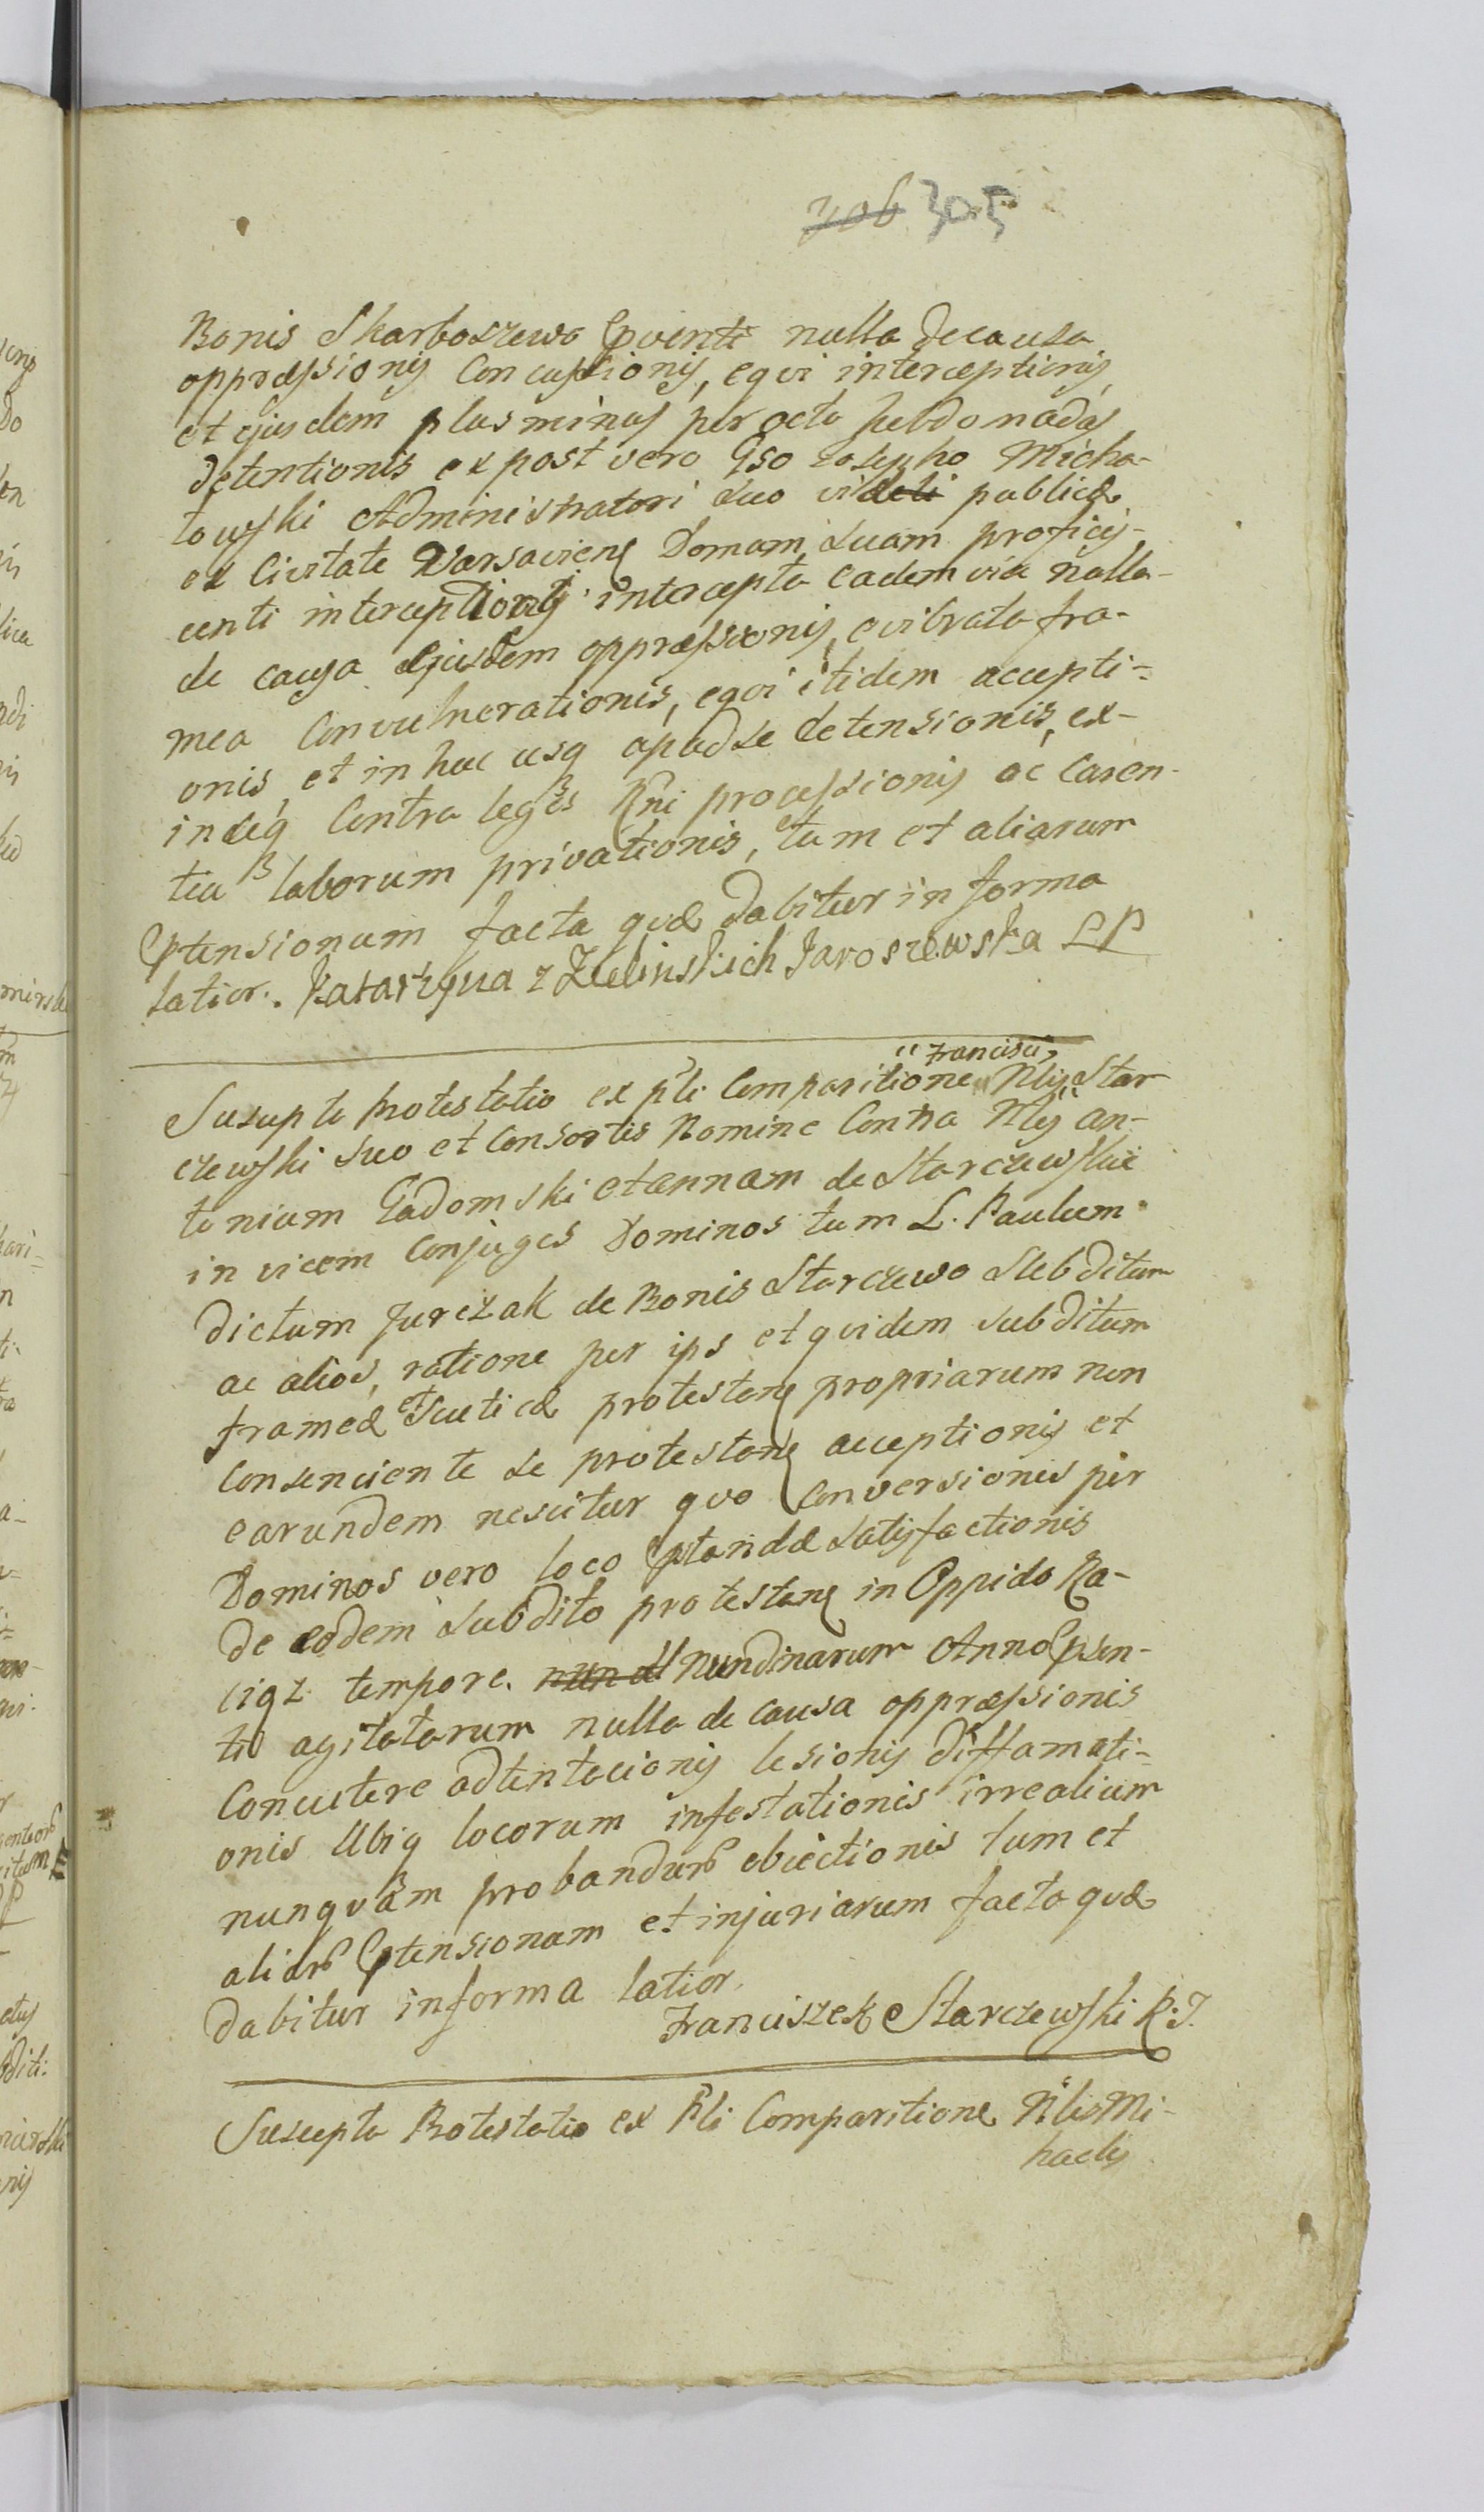 706 305
Bonis Skarboszewo Spventi nulla de causa
oppræssionis Concussionis, eqvi interceptionis
et ejusdem plus minus per octo hebdomadas
detentionis ex post vero Gso Josepho Micha-
towski Administratori suo vi deli publicæ
ex Civitate Varsaviens Domum suam proficis-
centi interceptionis intercepto eadem via nulla
de causa Ejusdem oppræssionis, evibrata fra-
mea Convulnerationis, eqvi itidem accepti-
onis, et in huc usq apud se detensionis, ex-
indeq Contra leges Rni processionis ac Caren-
tia laborum privationis, tum et aliarum
Ptensionum facta qvæ dabitur in forma
latior. Katarzyna z Zielinskich Jaroszewska LP
"Francisci"
Suscepta Protestatio ex pli Comparitione Nlis Star
czewski suo et Consortis Nomine Contra Nles An-
tonium Gadomski et Annam de Starczewskie
in vicem Conjuges Dominos tum L. Paulum
dictum Jurczak de Bonis Starczewo Subditum
ac alios, ratione per ips et qvidem subditum
frameæ et Scuticæ protestans propriarum non
Consenciente se protestans acceptionis et
earundem nescitur qvo Conversionis per
Dominos vero loco Pstandæ Satisfactionis
de eodem Subdito protestans in Oppido Ra-
ciąz tempore. nund Nundinarum Anno Psen-
ti agitatarum nulla de Causa oppræssionis
Concutere adtentacionis lesionis diffamati-
onis Ubiq locorum infestationis irrealium
nunqvam probandur obiectionis tum et
aliar Ptensionum et injuriarum facta qvæ
dabitur in forma latior.
Franciszek Starczewski R.J.
Suscepta Protestatio ex Pli Comparitione Nlis Mi-
haelis